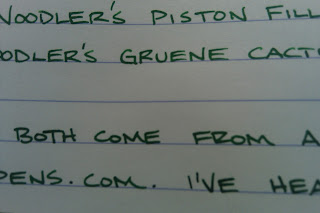 NOODLER'S PISTON FILL
OODLER'S GRUENE CACT
BOTH COME FROM A
PENS.COM. I'VE HEA